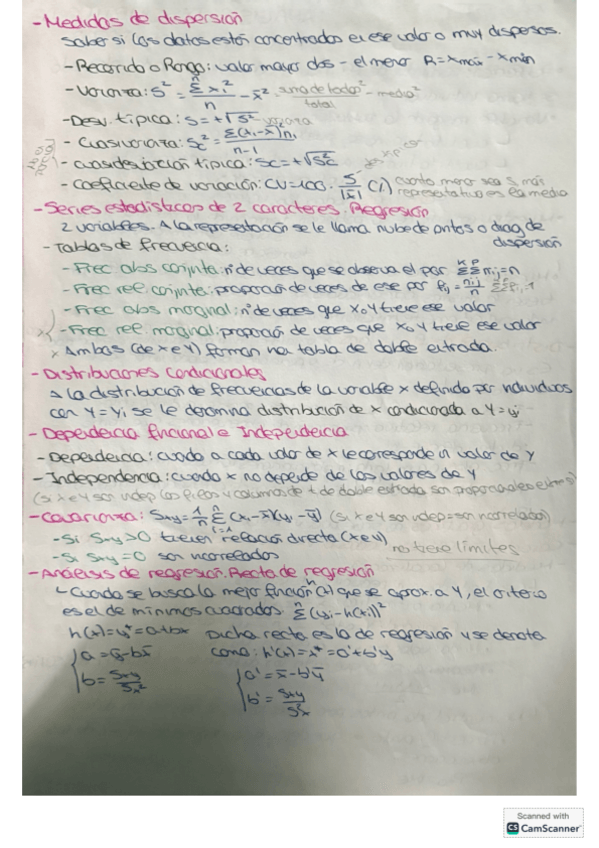 - Medidas de dispersión
Saber si los datos están concentrados en ese valor o muy dispersos.
- Recorrido o Rango: valor mayor dos - el menor R = xmax - xmin
- Varianza: S² = Σ xi² / n - x̄² suma de todos² - media² total
- Desv. típica: S = +√S² varianza
- Cuasivarianza: Sc² = Σ(xi - x̄)ni / n-1
- Cuasidesviación típica: Sc = +√Sc²
- Coeficiente de variación: CV = 100 · S/|x̄| (%) cuanto menor sea S más representativo es la media
- Series estadísticas de 2 caracteres. Regresión
2 variables. A la representación se le llama nube de puntos o diag de
dispersión
- Tablas de frecuencia:
- Frec abs conjunta: nº de veces que se observa el par ΣΣ ni,j = n
- Frec rel conjunta: proporción de veces de ese par fij = nij/n ΣΣfij = 1
- Frec abs marginal: nº de veces que X o Y tiene ese valor
- Frec rel marginal: proporción de veces que X o Y tiene ese valor
x Ambas (de x e Y) forman una tabla de doble entrada.
- Distribuciones condicionales
A la distribución de frecuencias de la variable x definida por individuos
con Y = Yj se le denomina distribución de x condicionada a Y = yj
- Dependencia funcional e Independencia
- Dependencia: cuando a cada valor de x le corresponde un valor de Y
- Independencia: cuando x no depende de los valores de Y
(si x e y son indep las filas y columnas de t de doble entrada son proporcionales entre sí)
- Covarianza: Sxy = 1/n Σ (xi - x̄)(yi - ȳ) (si x e Y son indep = son incorrelados)
- Si Sxy > 0 tienen relación directa (x e y)
- Si Sxy = 0 son incorrelados no tiene límites
- Análisis de regresión. Recta de regresión
Cuando se busca la mejor función h(x) que se aprox. a Y, el criterio
es el de mínimos cuadrados. Σ(yi - h(xi))²
h(x) = y* = a + bx Dicha recta es la de regresión y se denota
como: h'(x) = x* = a' + b'y
a = ȳ - bx̄
b = Sxy / Sx²
a' = x̄ - b'ȳ
b' = Sxy / S²x
Scanned with
CS CamScanner